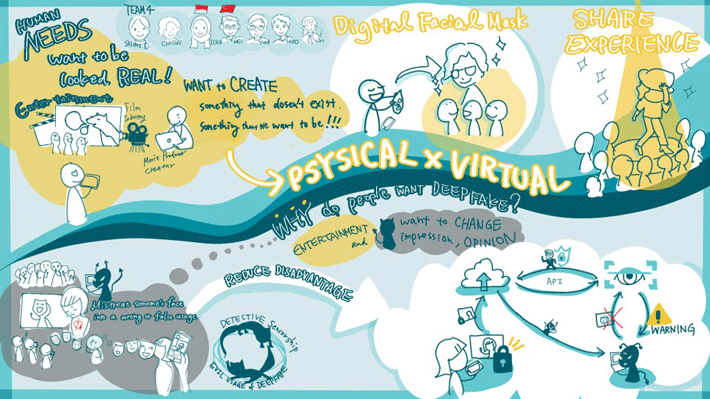 HUMAN
NEEDS
want to be
looked REAL!
Entertainment
Film
Movie Producer
creator
TEAM 4
WANT to CREATE
something that doesn't exist.
something that we want to be!!!
Digital Facial Mask
SHARE
EXPERIENCE
PSYSICAL x VIRTUAL
WHY do people want DEEPFAKE?
ENTERTAINMENT
and
want to CHANGE
impression, OPINION
someone's face
into a wrong or false usage.
REDUCE DISADVANTAGE
DETECTIVE
EVIL USAGE of DEEPFAKE
API
WARNING